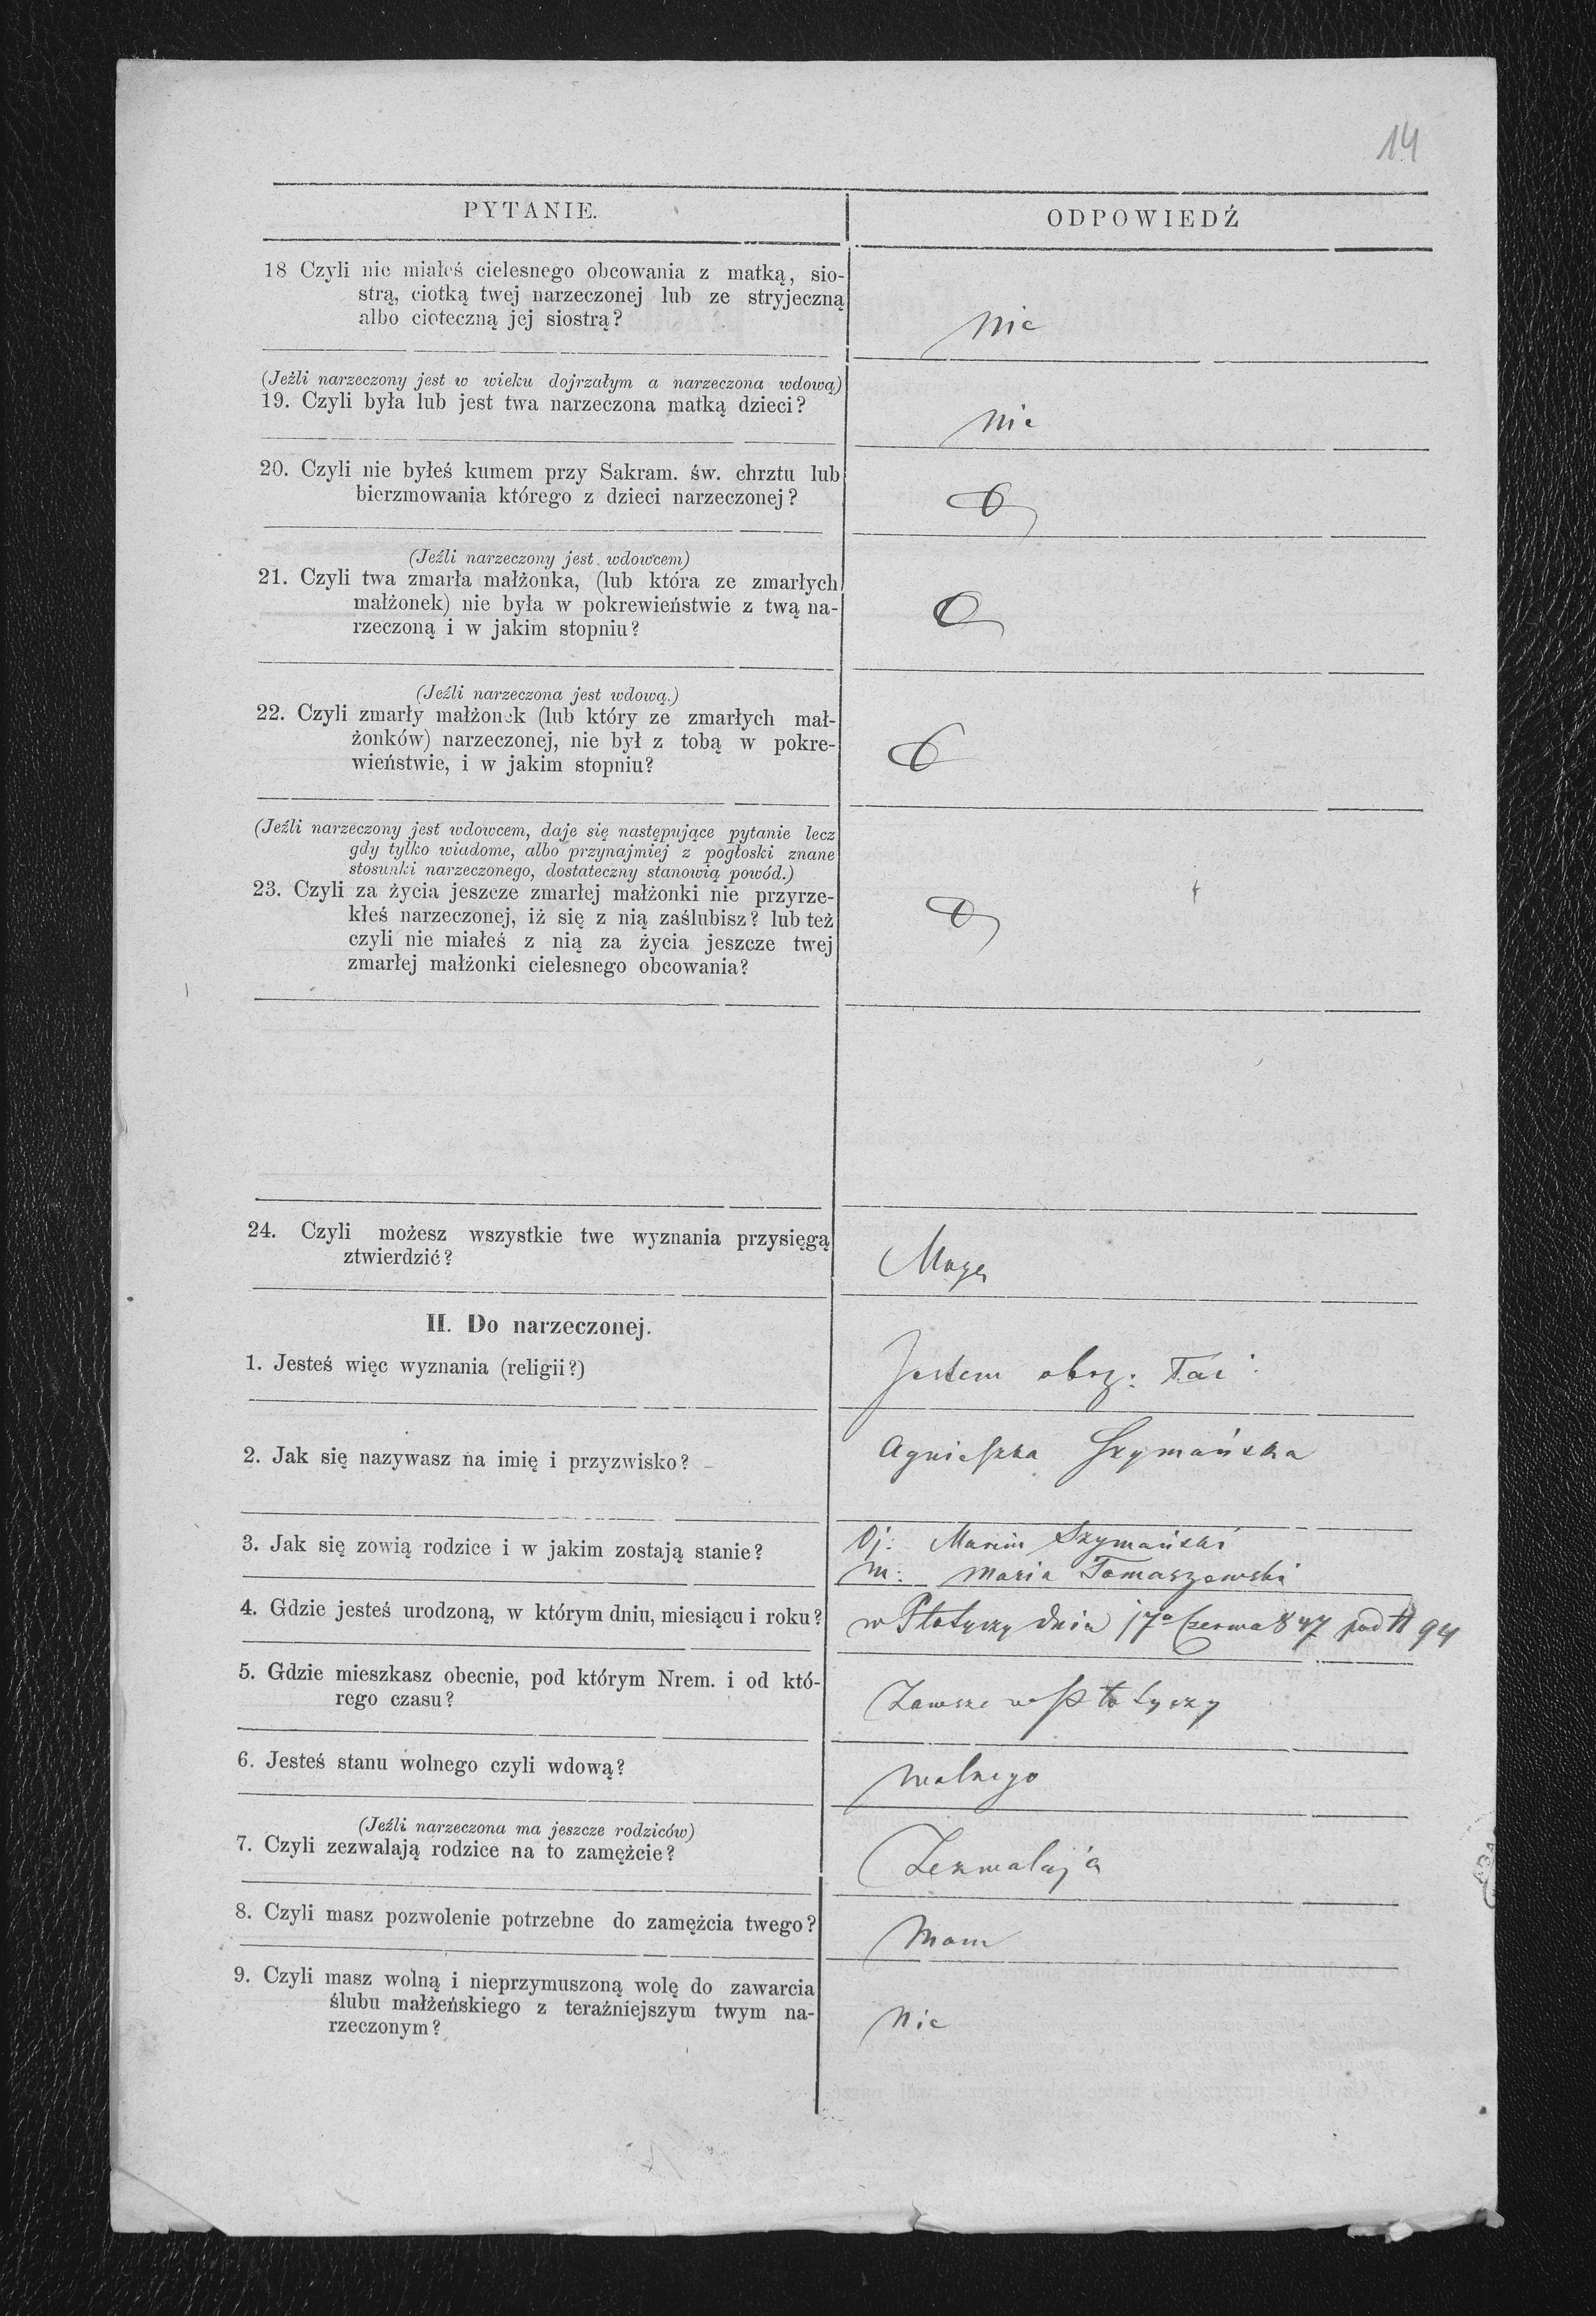 14
PYTANIE.
ODPOWIEDŹ
18 Czyli nie miałeś cielesnego obcowania z matką, sio-
strą, ciotką twej narzeczonej lub ze stryjeczną
albo cioteczną jej siostrą?
Nie
(Jeźli narzeczony jest w wieku dojrzałym a narzeczona wdową)
19. Czyli była lub jest twa narzeczona matką dzieci?
Nie
20. Czyli nie byłeś kumem przy Sakram. św. chrztu lub
bierzmowania którego z dzieci narzeczonej?
(Jeźli narzeczony jest wdowcem)
21. Czyli twa zmarła małżonka, (lub która ze zmarłych
małżonek) nie była w pokrewieństwie z twą na-
rzeczoną i w jakim stopniu?
(Jeźli narzeczona jest wdową.)
22. Czyli zmarły małżonek (lub który ze zmarłych mał-
żonków) narzeczonej, nie był z tobą w pokre-
wieństwie, i w jakim stopniu?
(Jeźli narzeczony jest wdowcem, daje się następujące pytanie lecz
gdy tylko wiadome, albo przynajmiej z pogłoski znane
stosunki narzeczonego, dostateczny stanowią powód.)
23. Czyli za życia jeszcze zmarłej małżonki nie przyrze-
kłeś narzeczonej, iż się z nią zaślubisz? lub też
czyli nie miałeś z nią za życia jeszcze twej
zmarłej małżonki cielesnego obcowania?
24. Czyli możesz wszystkie twe wyznania przysięgą
ztwierdzić?
Mogę
II. Do narzeczonej.
1. Jesteś więc wyznania (religii?)
Jestem obrz: łać:
2. Jak się nazywasz na imię i przyzwisko?
Agnieszka Szymańska
3. Jak się zowią rodzice i w jakim zostają stanie?
Oj: Marcin Szymański
m: Maria Tomaszewski
4. Gdzie jesteś urodzoną, w którym dniu, miesiącu i roku?
w Płotyczy dnia 17o Czerwca 847 pod N 94
5. Gdzie mieszkasz obecnie, pod którym Nrem. i od któ-
rego czasu?
Zawsze w Płotyczy
6. Jesteś stanu wolnego czyli wdową?
Wolnego
(Jeźli narzeczona ma jeszcze rodziców)
7. Czyli zezwalają rodzice na to zamężcie?
Zezwalają
8. Czyli masz pozwolenie potrzebne do zamężcia twego?
Mam
9. Czyli masz wolną i nieprzymuszoną wolę do zawarcia
ślubu małżeńskiego z teraźniejszym twym na-
rzeczonym?
Nie